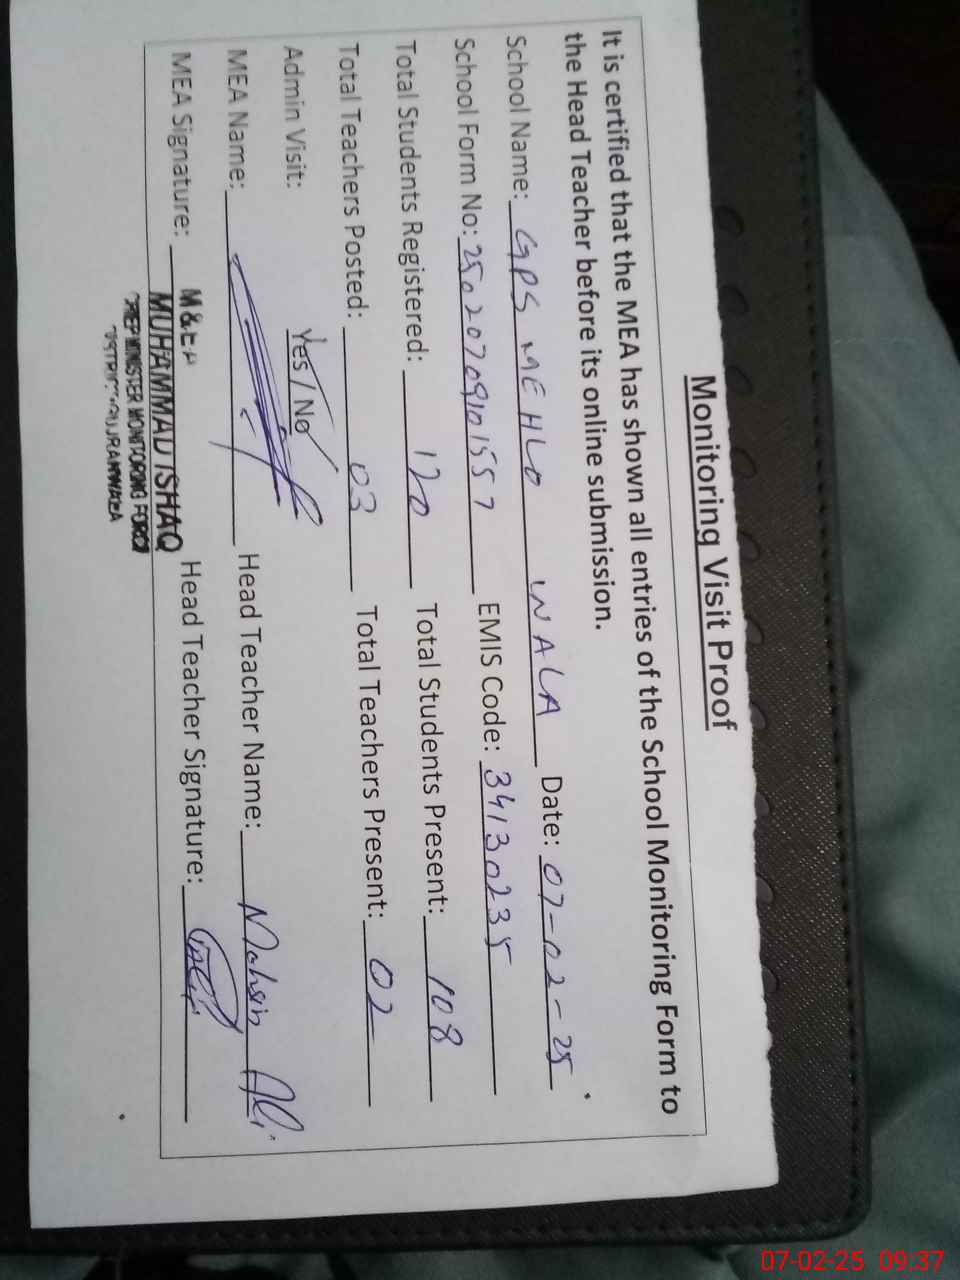 Monitoring Visit Proof
It is certified that the MEA has shown all entries of the School Monitoring Form to
the Head Teacher before its online submission.
School Name: GPS MEHLO WALA Date: 07-02-25
School Form No: 25020709101557 EMIS Code: 34130235
Total Students Registered: 120 Total Students Present: 108
Total Teachers Posted: 03 Total Teachers Present: 02
Admin Visit: Yes / No
MEA Name: Head Teacher Name: Mohsin Ali
MEA Signature: Head Teacher Signature:
MUHAMMAD ISHAQ
CHIEF MINISTER MONITORING FORCE
DISTRICT GUJRANWALA
07-02-25 09:37